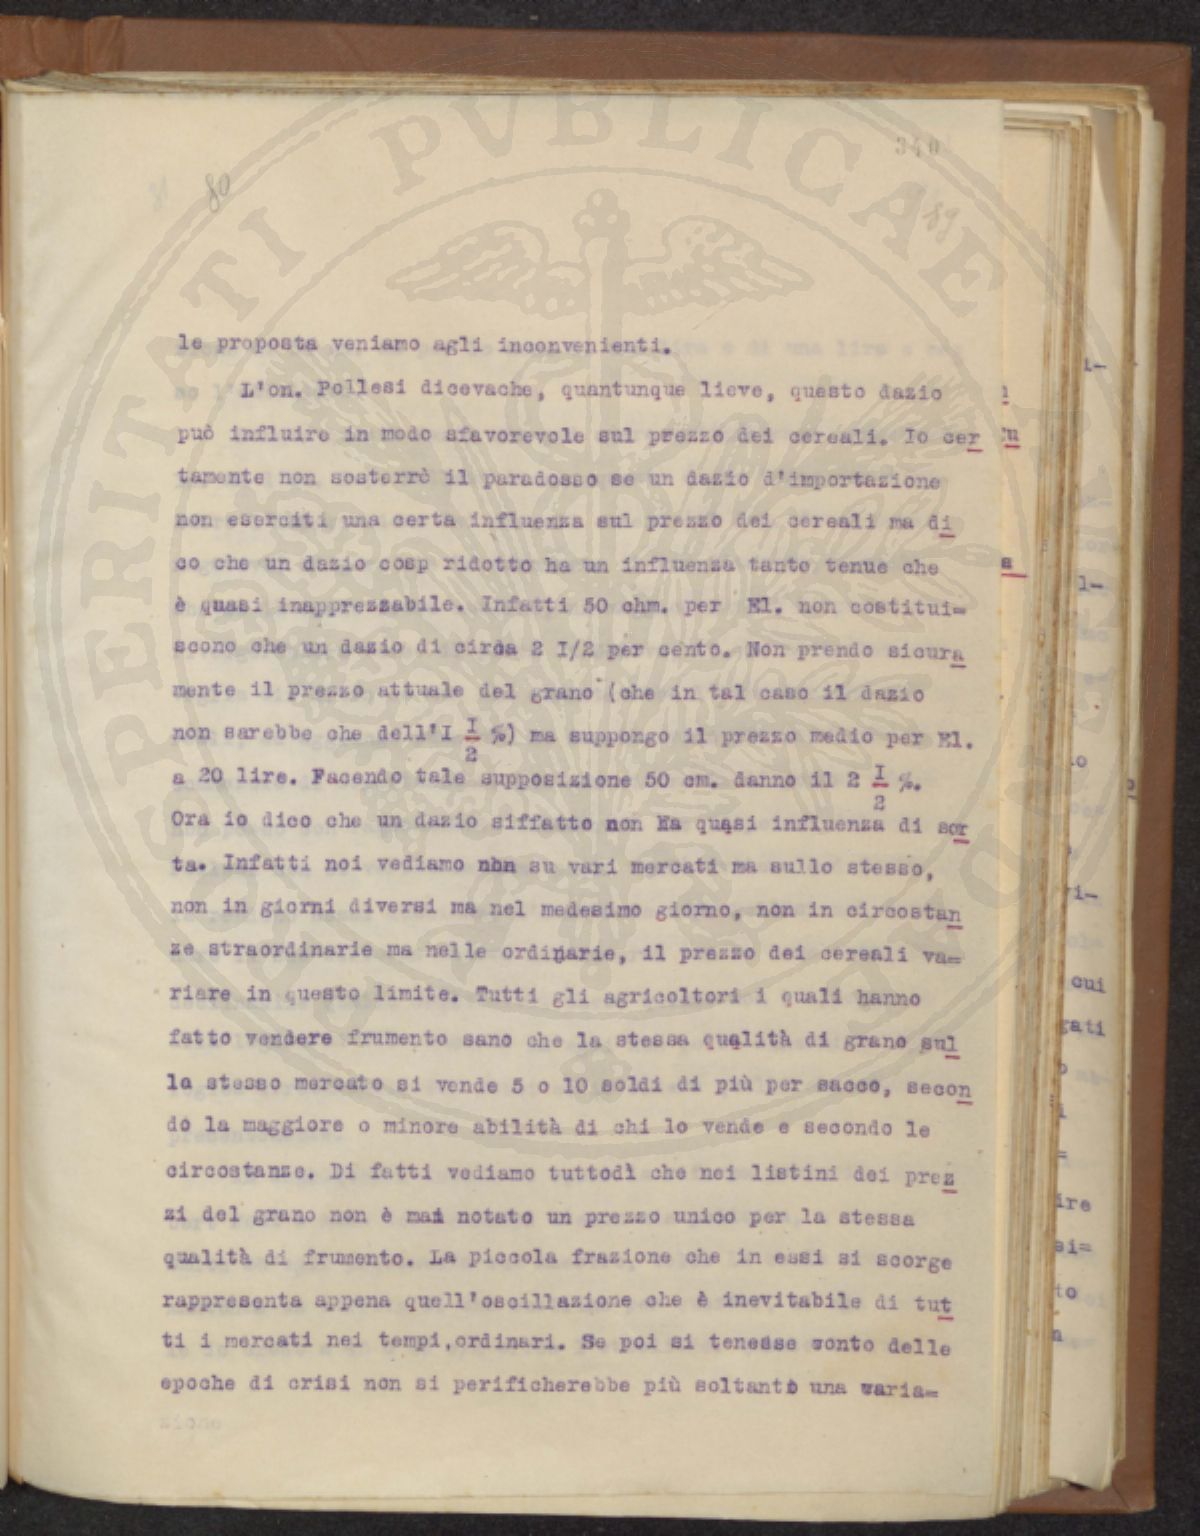 340
80
89
le proposta veniamo agli inconvenienti.
L'on. Pollesi dicevache, quantunque lieve, questo dazio
può influire in modo sfavorevole sul prezzo dei cereali. Io cer
tamente non sosterrò il paradosso se un dazio d'importazione
non eserciti una certa influenza sul prezzo dei cereali ma di
co che un dazio cosp ridotto ha un influenza tanto tenue che
è quasi inapprezzabile. Infatti 50 chm. per El. non costitui=
scono che un dazio di circa 2 I/2 per cento. Non prendo sicura
mente il prezzo attuale del grano (che in tal caso il dazio
non sarebbe che dell'I I/2 %) ma suppongo il prezzo medio per El.
a 20 lire. Facendo tale supposizione 50 cm. danno il 2 I/2 %.
Ora io dico che un dazio siffatto non Ha quasi influenza di sor
ta. Infatti noi vediamo non su vari mercati ma sullo stesso,
non in giorni diversi ma nel medesimo giorno, non in circostan
ze straordinarie ma nelle ordinarie, il prezzo dei cereali va=
riare in questo limite. Tutti gli agricoltori i quali hanno
fatto vendere frumento sano che la stessa qualità di grano sul
lo stesso mercato si vende 5 o 10 soldi di più per sacco, secon
do la maggiore o minore abilità di chi lo vende e secondo le
circostanze. Di fatti vediamo tuttodì che nei listini dei prez
zi del grano non è mai notato un prezzo unico per la stessa
qualità di frumento. La piccola frazione che in essi si scorge
rappresenta appena quell'oscillazione che è inevitabile di tut
ti i mercati nei tempi,ordinari. Se poi si tenesse conto delle
epoche di crisi non si perificherebbe più soltanto una varia=
zione